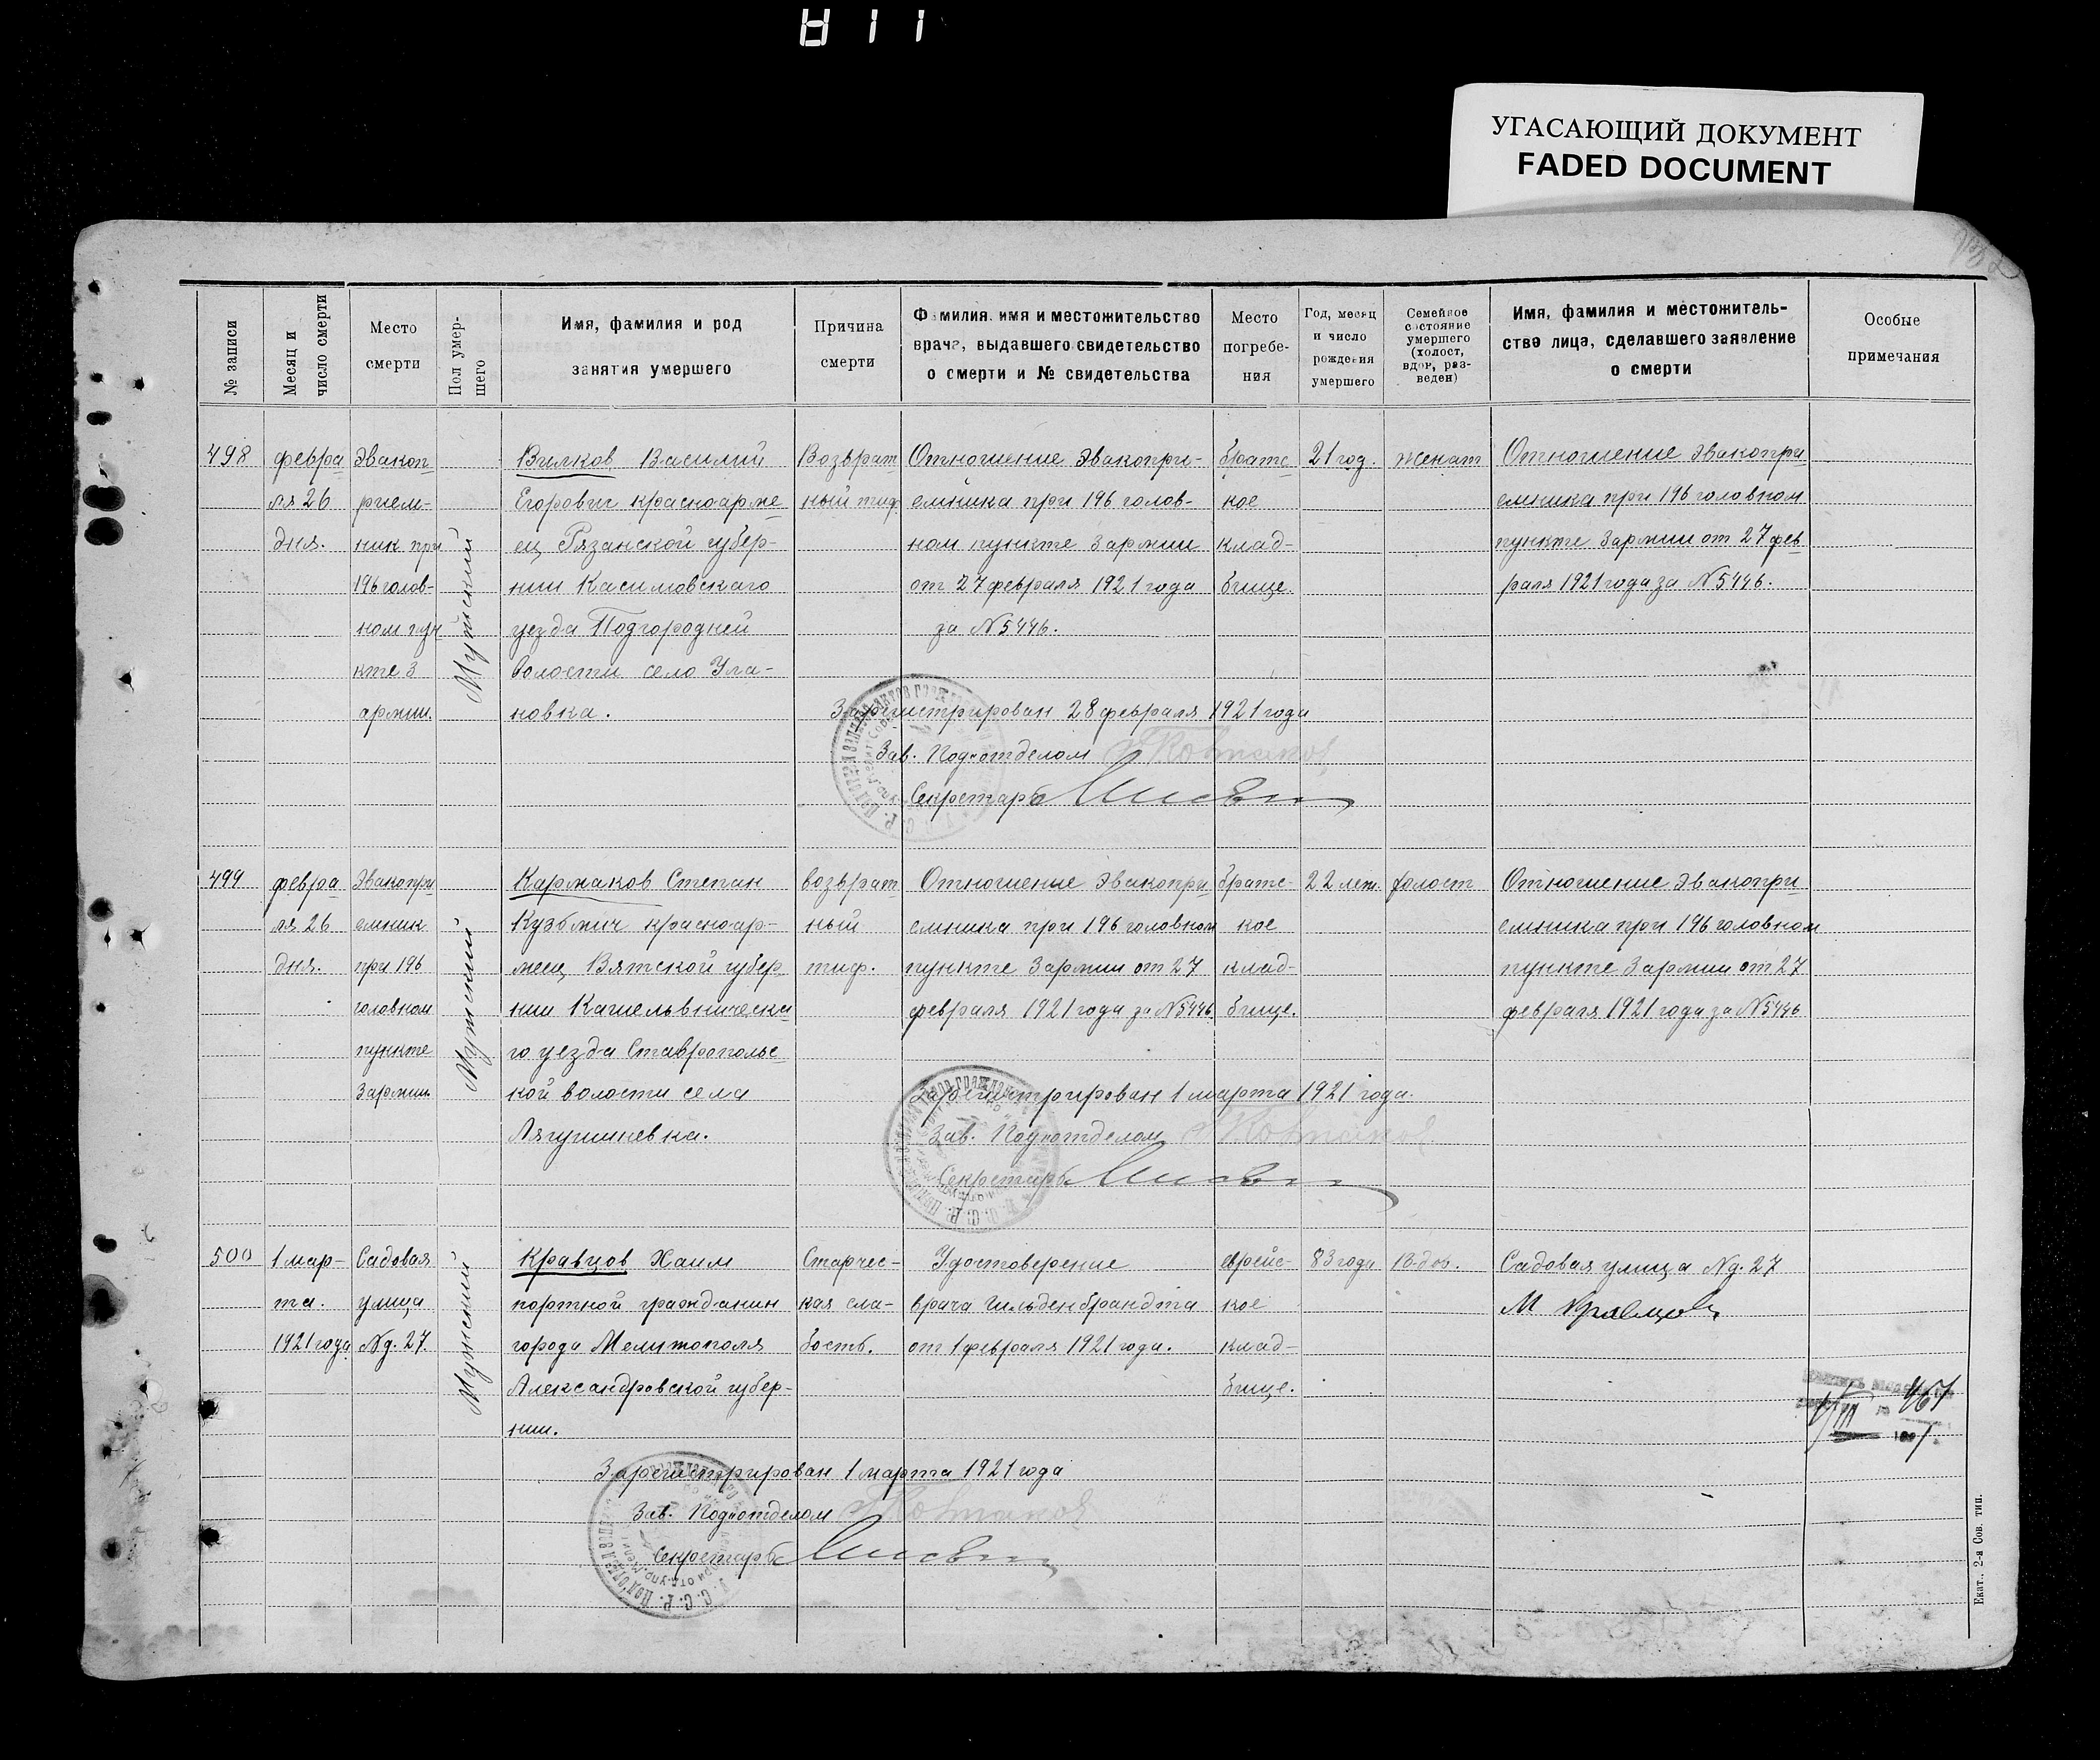 А 11
УГАСАЮЩИЙ ДОКУМЕНТ
FADED DOCUMENT
№ записи
Месяц и
число смерти
Место
смерти
Пол умер-
шего
Имя, фамилия и род
занятия умершего
Причина
смерти
Фамилия, имя и местожительство
врача, выдавшего свидетельство
о смерти и № свидетельства
Место
погребе-
ния
Год, месяц
и число
рождения
умершего
Семейное
состояние
умершего
(холост,
вдов, раз-
веден)
Имя, фамилия и местожитель-
ство лица, сделавшего заявление
о смерти
Особые
примечания
498
февра
ля 26
дня.
Эвакоп
рием-
ник при
196 голов-
ном пун
кте 3
армии.
Мужской
Вилков Василий
Егорович красноарме
ец Рязанской губер-
нии Касимовскаго
уезда Подгородней
волости село Ула-
новка.
Возврат
ный тиф
Отношение Эвакопри-
емника при 196 голов-
ном пункте 3 армии
от 27 февраля 1921 года
за № 5446.
братс
кое
клад-
бище.
21 год.
женат
Отношение Эвакопри
емника при 196 головном
пункте 3 армии от 27 фев
раля 1921 года за № 5446.
Зарегистрирован 28 февраля 1921 года
Зав. Подотделом
Секретарь
499
февра
ля 26
дня.
Эвакопри
емник
при 196
головном
пункте
3 армии.
Мужской
Кармаков Степан
Кузьмич красноар-
меец Вятской губер
нии Кательвническа
го уезда Ставропольс
кой волости села
Лягушиневка.
возврат
ный
тиф.
Отношение Эвакопри
емника при 196 головном
пункте 3 армии от 27
февраля 1921 года за № 5446
братс-
кое
клад-
бище.
22 лет.
холост
Отношение Эвакопри
емника при 196 головном
пункте 3 армии от 27
февраля 1921 года за № 5446
Зарегистрирован 1 марта 1921 года.
Зав. Подотделом
Секретарь
500
1 мар-
та.
1921 года
Садовая
улица
№ д. 27.
Мужской
Кравцов Хаим
портной гражданин
города Мелитополя
Александровской губер-
нии.
Старчес-
кая сла-
бость.
Удостоверение
врача Гильденбрандта
от 1 февраля 1921 года.
еврейс-
кое
клад-
бище.
83 года
Вдов.
Садовая улица № д. 27
М Кравцов
Зарегистрирован 1 марта 1921 года
Зав. Подотделом
Секретарь
Екат., 2-я Сов. тип.